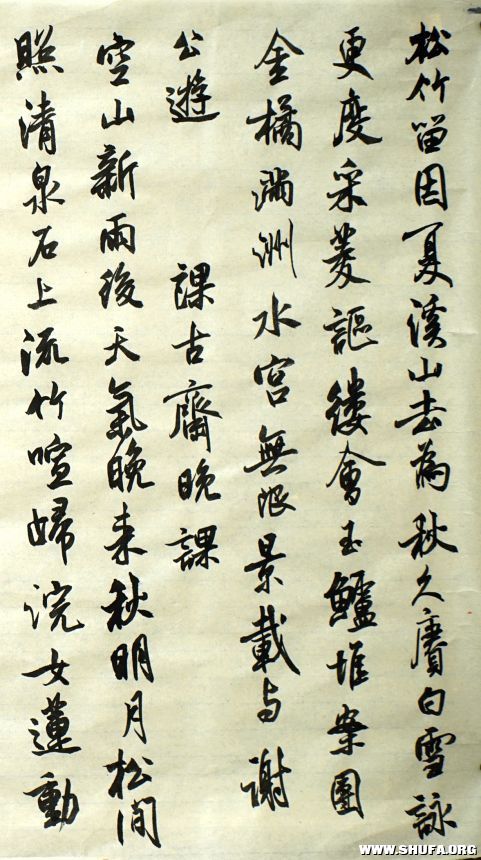 松竹留因夏溪山去為秋久賡白雪詠
更度采菱謳縷會玉鱸堆案團
金橘滿洲水宮無限景載与謝
公遊 課古齋晚課
空山新雨後天氣晚来秋明月松間
照清泉石上流竹喧歸浣女蓮動
WWW.SHUFA.ORG